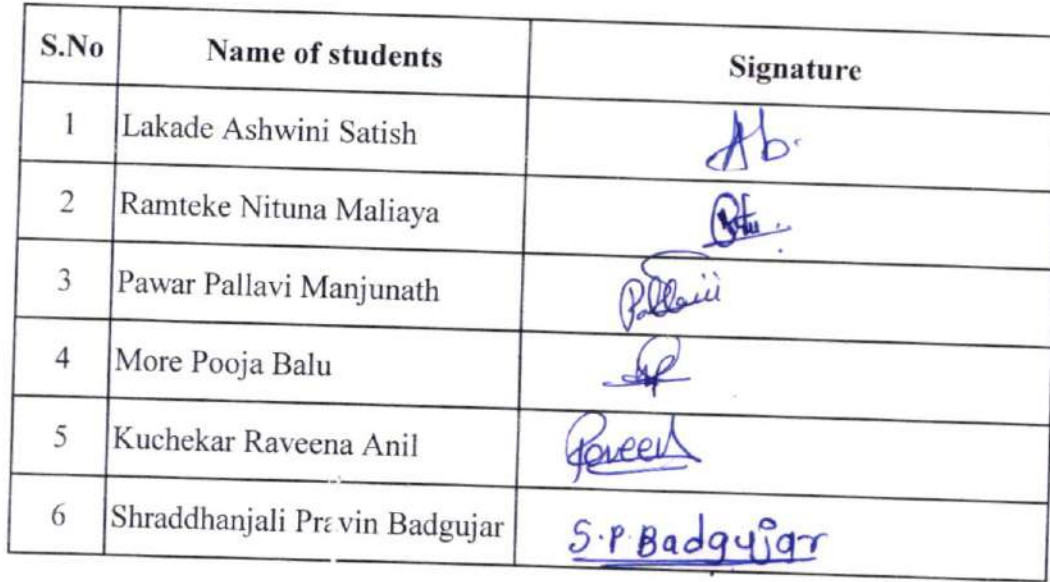 S.No Name of students Signature
1 Lakade Ashwini Satish Ab.
2 Ramteke Nituna Maliaya
3 Pawar Pallavi Manjunath Pallavi
4 More Pooja Balu
5 Kuchekar Raveena Anil
6 Shraddhanjali Pravin Badgujar S.P.Badgujar